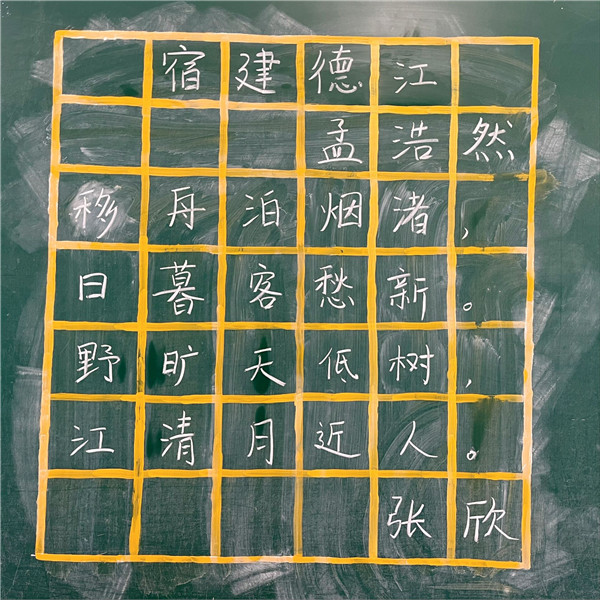 宿建德江
孟浩然
移舟泊烟渚，
日暮客愁新。
野旷天低树，
江清月近人。
张欣